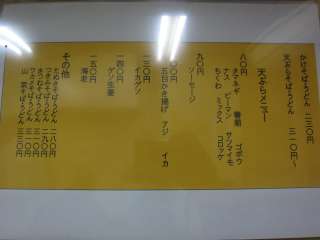 かけそば・うどん　二三〇円
天ぷらそば・うどん　三一〇円〜
天ぷらメニュー
八〇円
タマネギ　春菊　ゴボウ
ナス　ピーマン　サツマイモ
ちくわ　ミックス　コロッケ
九〇円
ソーセージ
一〇〇円
五目かき揚げ　アジ　イカ
一三〇円
イカゲソ
一四〇円
ゲソ生姜
一五〇円
海老
その他
たぬきそば・うどん　二八〇円
つきみそば・うどん　二九〇円
きつねそば・うどん　三一〇円
わかめそば・うどん　三一〇円
山　菜そば・うどん　三三〇円